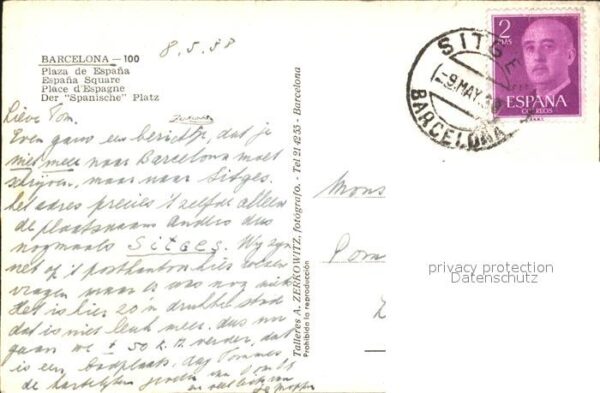 8.5.58
BARCELONA — 100
Plaza de España
España Square
Place d'Espagne
Der "Spanische" Platz
Lieve Tom.
Even gauw een berichtje, dat je
niet meer naar Barcelona moet
schrijven, maar naar Sitges.
het adres precies 't zelfde alleen
de plaatsnaam anders dus
nogmaals Sitges. Wij zijn
net op 't postkantoor hier
vragen maar er was nog niets
Het is hier zo'n drukke stad
dat is niet leuk meer, dus nu
gaan we ± 50 k.M. verder, dat
is een badplaats. dag Tommes
de hartelijke groeten van
en veel liefs van
Talleres A. ZERKOWITZ, fotógrafo. - Tel 21 42 55 - Barcelona
Prohibida la reproducción
SITGES
-9.MAY.58
BARCELONA
2
PTAS
ESPAÑA
CORREOS
Mons
privacy protection
Datenschutz